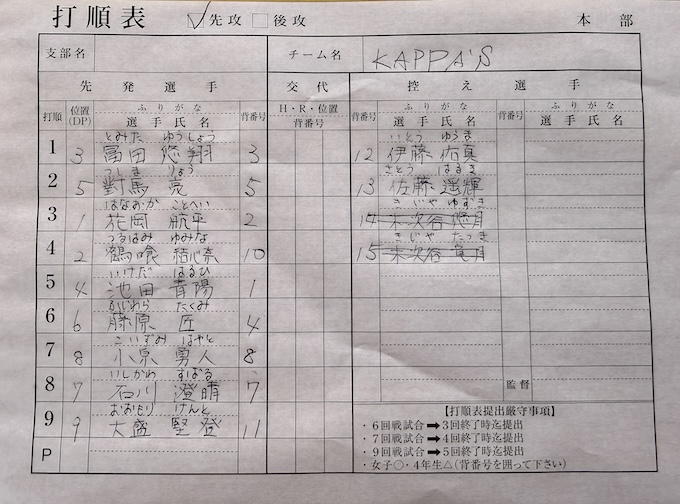 打順表 ✓先攻 □後攻 本部
支部名 チーム名 KAPPA'S
先発選手 交代 控え選手
打順 位置(DP) ふりがな 選手氏名 背番号 H・R・位置 背番号 ふりがな 選手氏名 背番号 ふりがな 選手氏名
とみた ゆうしょう
1 3 冨田 悠翔 3
いとう ゆうま
12 伊藤 佑真
つしま りょう
2 5 對馬 亮 5
さとう はるき
13 佐藤 遥輝
はなおか こことへい
3 1 花岡 航平 2
きじや ゆずき
14 木次谷 悠月
つるはみ ゆみな
4 2 鶴喰 結心奈 10
きじや たつき
15 木次谷 竜月
いけだ はるひ
5 4 池田 青陽 1
ふじわら たくみ
6 6 藤原 匠 4
こいずみ はやと
7 8 小泉 勇人 8
いしかわ すばる
8 7 石川 澄晴 7
おおもり けんと
9 9 大盛 堅登 11
P
監督
【打順表提出厳守事項】
・6回戦試合➡3回終了時迄提出
・7回戦試合➡4回終了時迄提出
・9回戦試合➡5回終了時迄提出
・女子○・4年生△(背番号を囲って下さい)